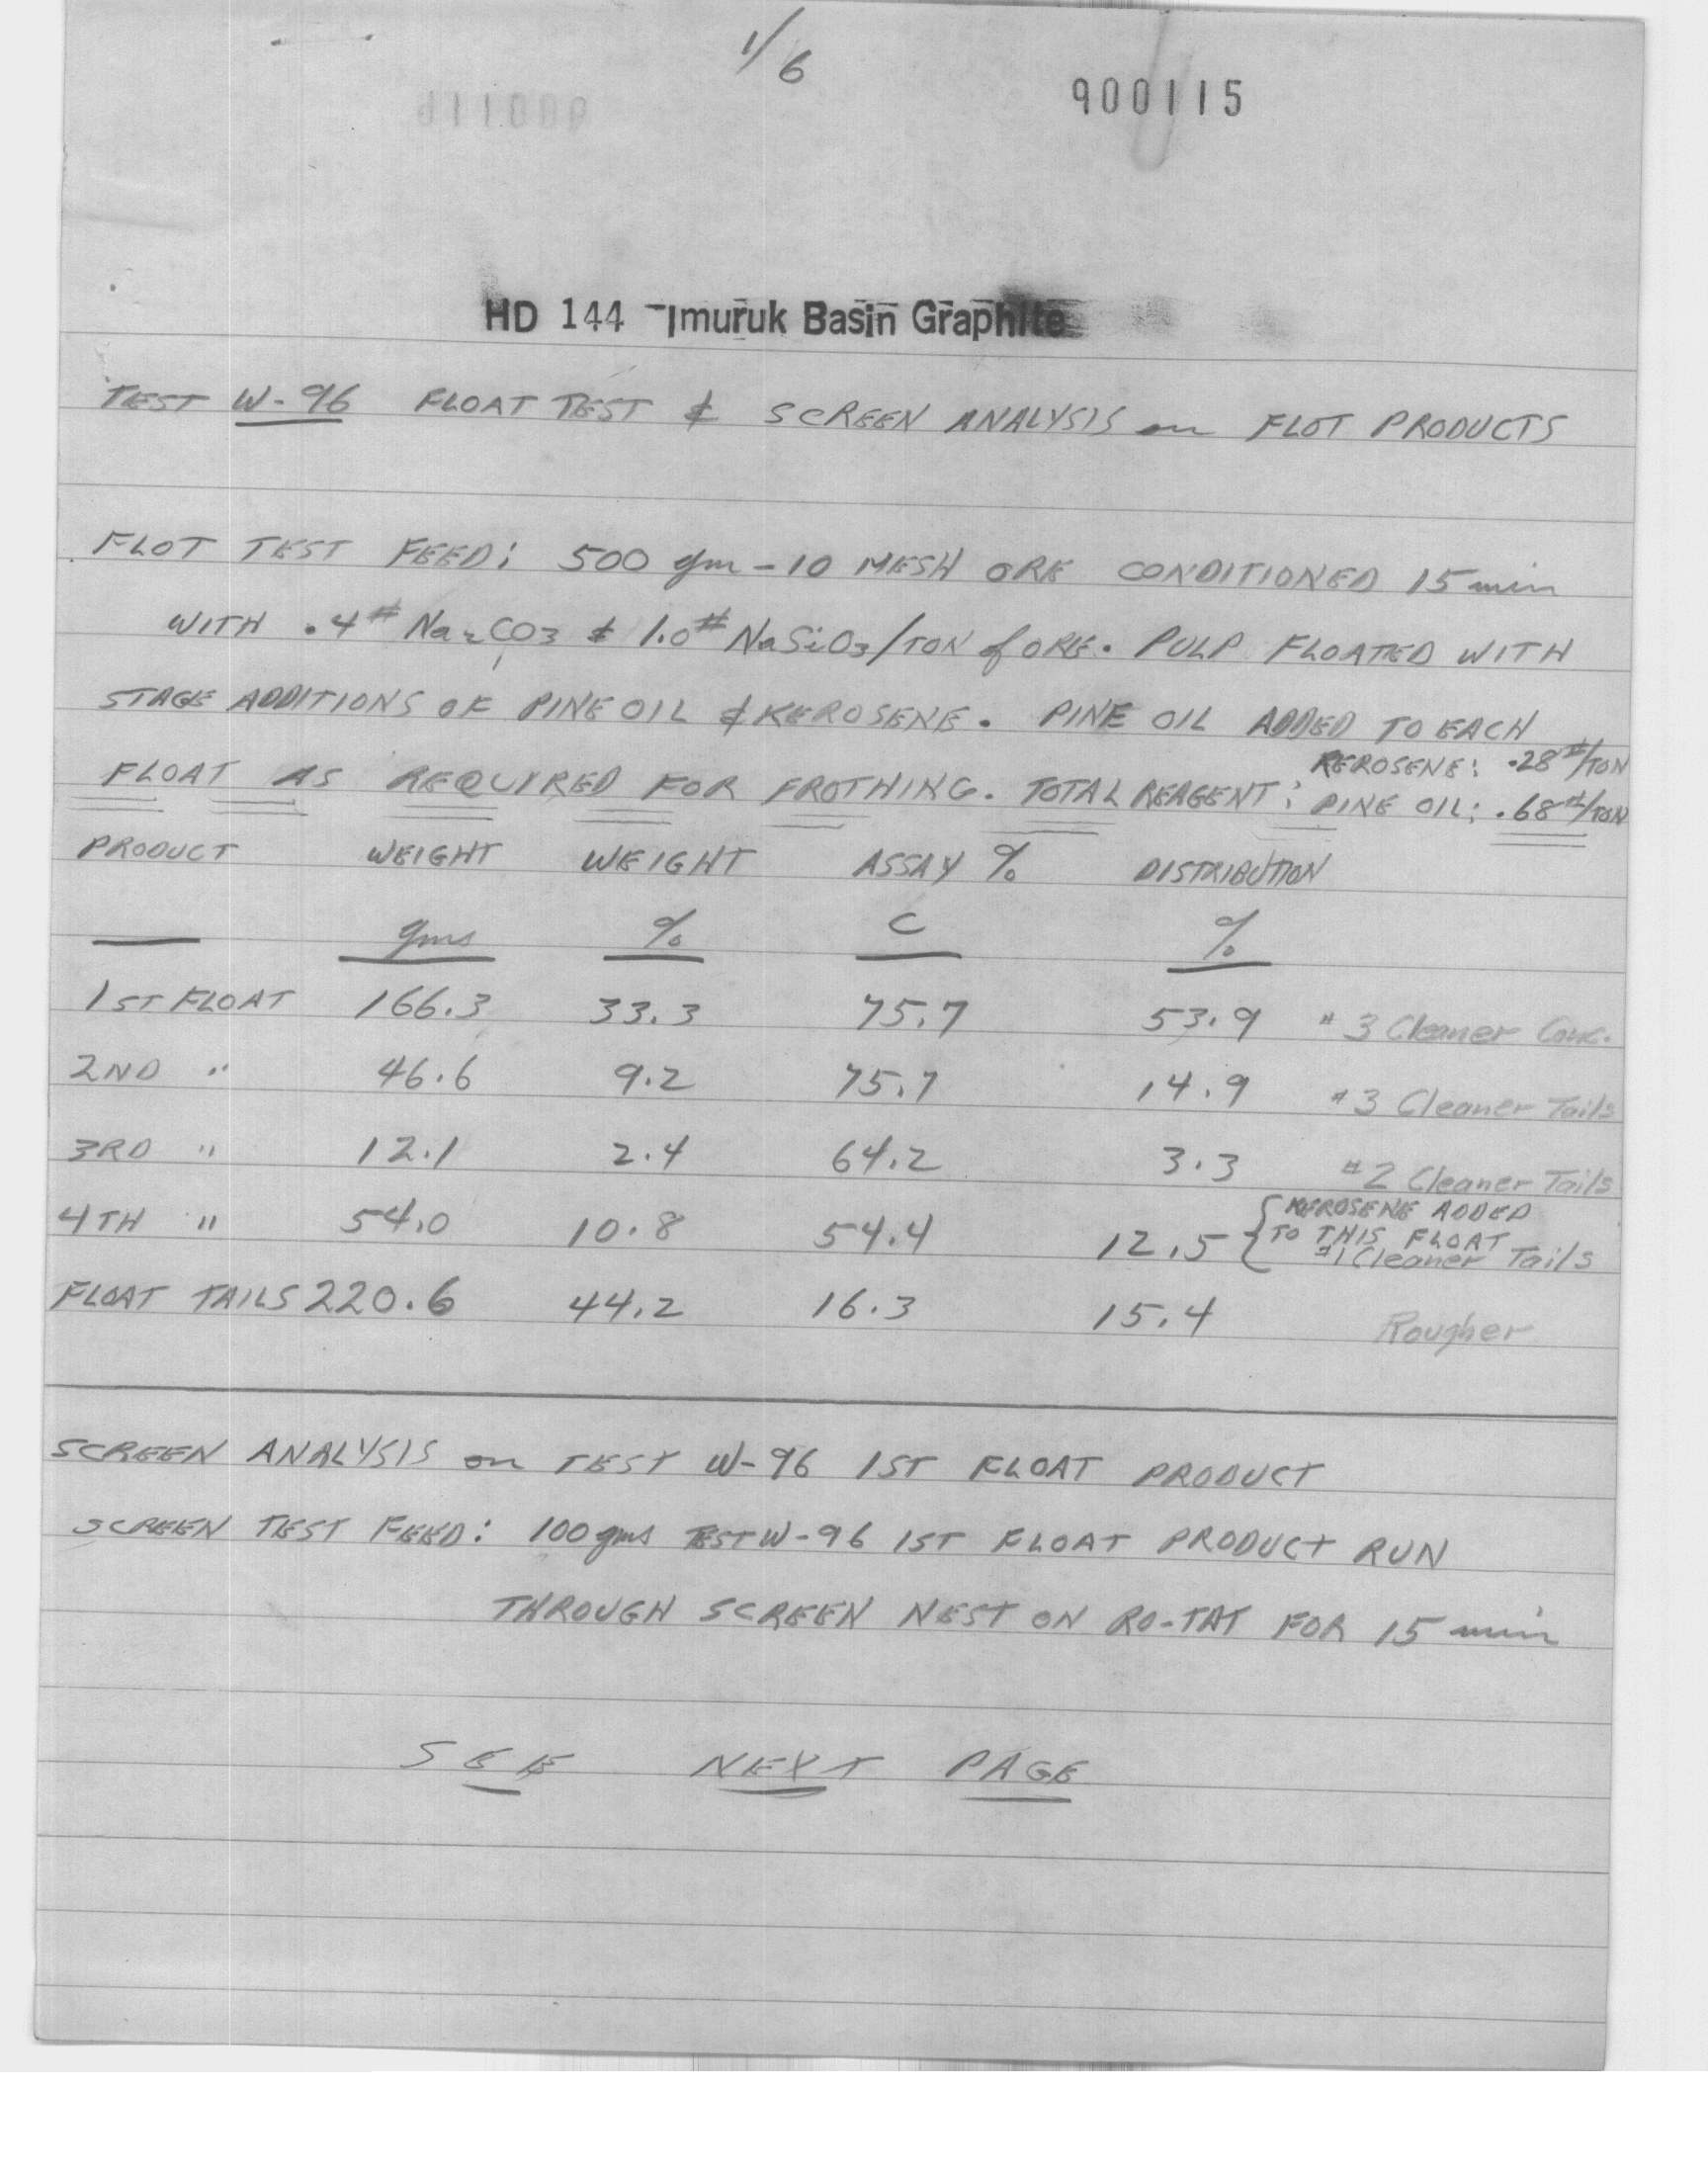 1/6
900115
HD 144 - Imuruk Basin Graphite
TEST W-96 FLOAT TEST & SCREEN ANALYSIS on FLOT PRODUCTS
FLOT TEST FEED: 500 gm -10 MESH ORE CONDITIONED 15 min
WITH .4# Na2CO3 & 1.0# NaSiO3/TON of ORE. PULP FLOATED WITH
STAGE ADDITIONS OF PINE OIL & KEROSENE. PINE OIL ADDED TO EACH
FLOAT AS REQUIRED FOR FROTHING. TOTAL REAGENT: KEROSENE: .28#/TON
PINE OIL: .68#/TON
PRODUCT WEIGHT WEIGHT ASSAY % DISTRIBUTION
gms % C %
1ST FLOAT 166.3 33.3 75.7 53.9 #3 Cleaner Conc.
2ND " 46.6 9.2 75.7 14.9 #3 Cleaner Tails
3RD " 12.1 2.4 64.2 3.3 #2 Cleaner Tails
4TH " 54.0 10.8 54.4 12.5 { KEROSENE ADDED
TO THIS FLOAT
#1 Cleaner Tails
FLOAT TAILS 220.6 44.2 16.3 15.4 Rougher
SCREEN ANALYSIS on TEST W-96 1ST FLOAT PRODUCT
SCREEN TEST FEED: 100 gms TEST W-96 1ST FLOAT PRODUCT RUN
THROUGH SCREEN NEST ON RO-TAT FOR 15 min
SEE NEXT PAGE